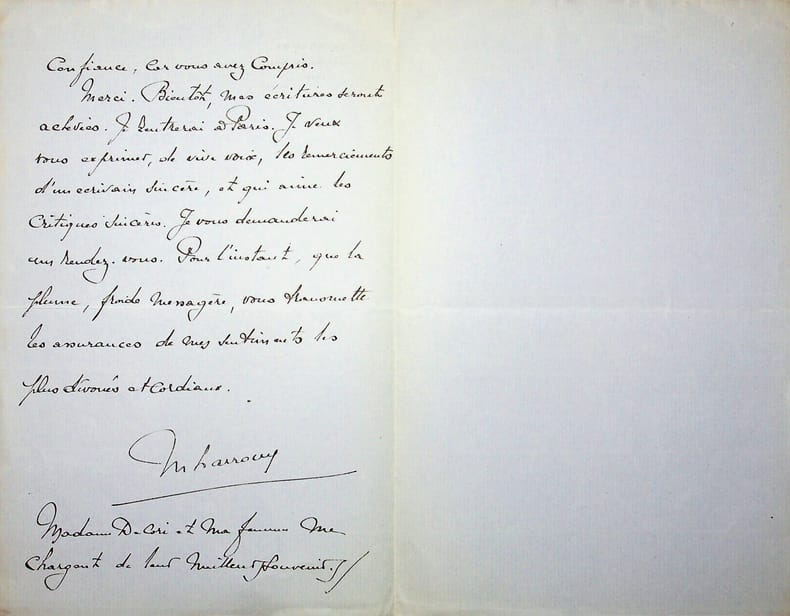 Confiance, car vous avez Compris.
Merci. Bientôt, mes écritures seront
achevées. Je rentrerai à Paris. Je veux
vous exprimer, de vive voix, les remerciements
d'un écrivain sincère, et qui aime les
Critiques sincères. Je vous demanderai
un rendez-vous. Pour l'instant, que la
plume, froide messagère, vous transmette
les assurances de mes sentiments les
plus dévoués et Cordiaux.
Madame et ma femme me
Chargent de leur meilleur souvenir.